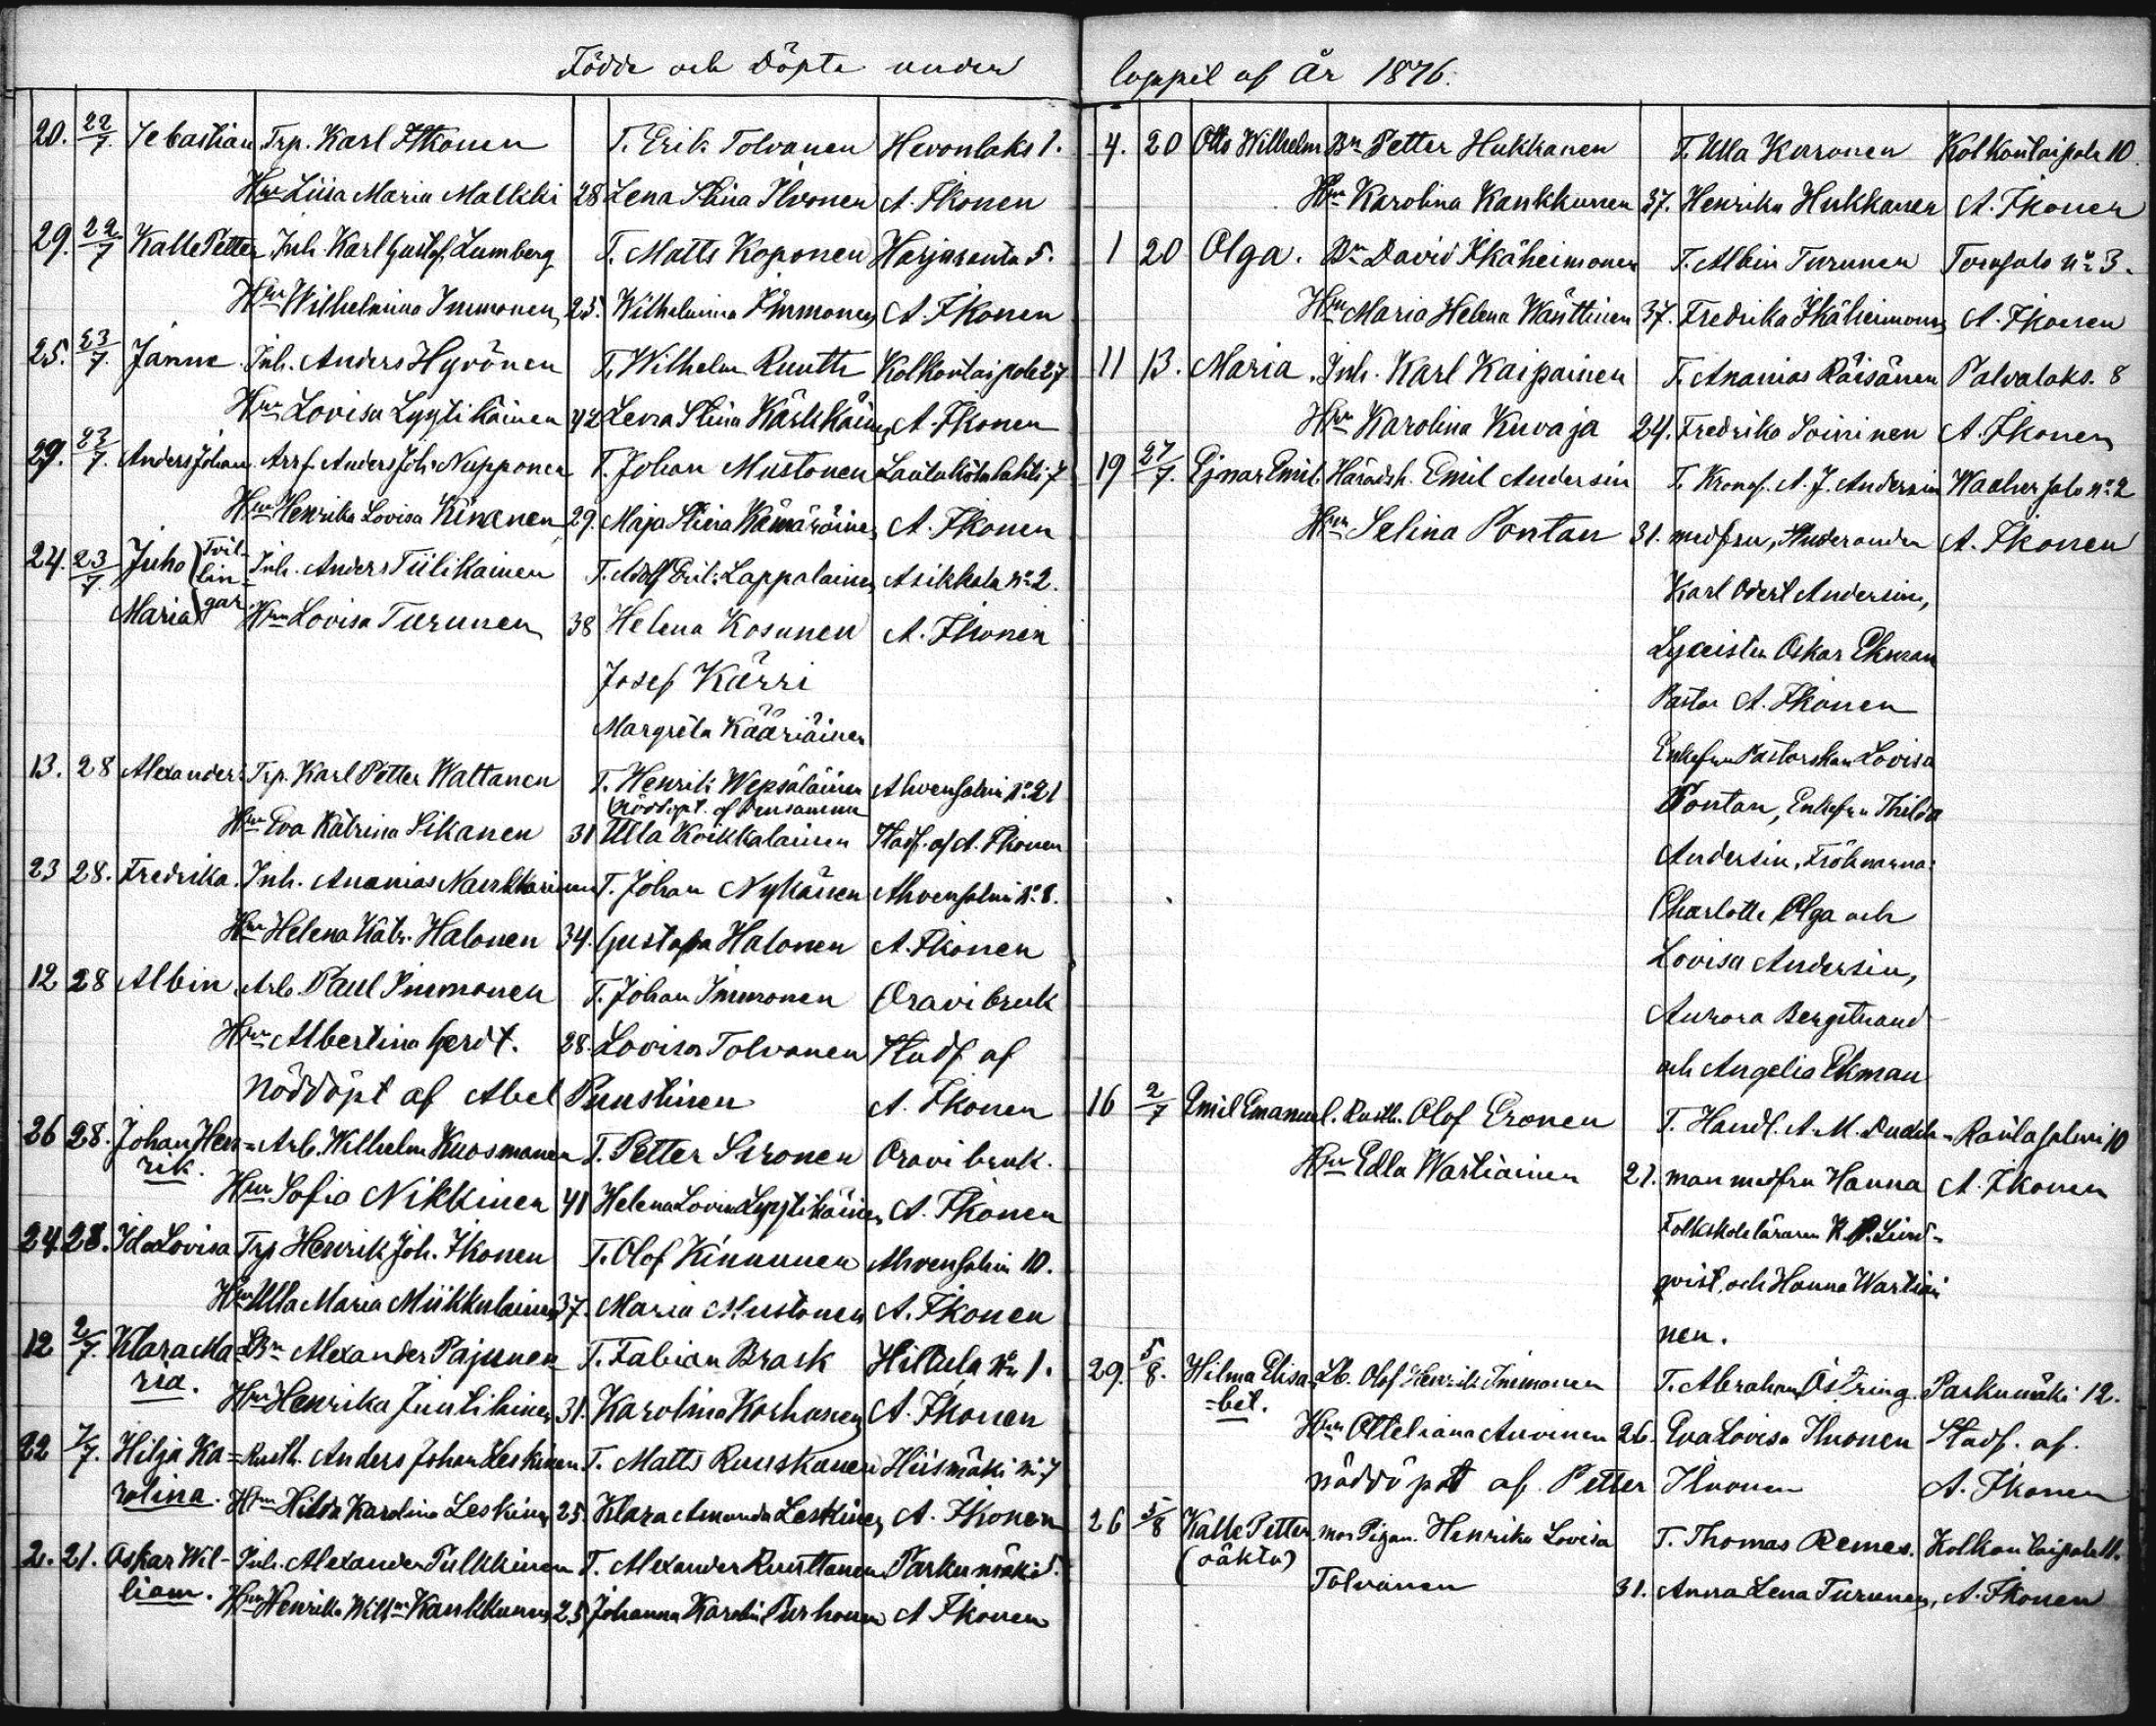 Födde och Döpte under
20. 22/7. Sebastian Trp. Karl Itkonen T. Erik Tolvanen Hevonlaks 1.
Hu Liisa Maria Malkki 28 Lena Stina Ilvonen A. Ikonen
29. 22/7 Kalle Petter Inh. Karl Gustaf Lumberg T. Matts Koponen Harjuranta 5.
Hu Wilhelmina Immonen 25. Wilhelmina Immonen A. Ikonen
25. 23/7. Janne Inh. Anders Hyvönen T. Wilhelm Ruuth Kolkontaipale 27
Hu Lovisa Lyytikäinen 42 Lena Stina Kärkkäinen A. Ikonen
29. 23/7. Anders Johan Arrf. Anders Joh. Nupponen T. Johan Mustonen Lautakotalahti 7
Hu Henrika Lovisa Kinanen 29. Maja Stina Kämäräinen A. Ikonen
24. 23/7. Juho Tvil- Inh. Anders Tiilikainen T. Adolf Erik Lappalainen Asikkala No 2.
lin-
Maria gar. Hu Lovisa Turunen 38 Helena Kosunen A. Ikonen
Josef Kärri
Margreta Kääriäinen
13. 28 Alexander Trp. Karl Petter Wattanen T. Henrik Wepsäläinen Ahvensalmi No 21
Nöddöpt. af densamma
Hu Eva Katrina Sikanen 31 Ulla Koikkalainen Stadf. af A. Ikonen
23 28. Fredrika. Inh. Ananias Naukkarinen T. Johan Nykänen Ahvensalmi No 8.
Hu Helena Katr. Halonen 34. Gustafva Halonen A. Ikonen
12 28 Albin Arb. Paul Immonen T. Johan Immonen Oravi bruk
Hu Albertina Gerdt. 28. Lovisa Tolvanen Stadf af
Nöddöpt af Abel Puustinen A. Ikonen
26 28. Johan Hen= Arb. Wilhelm Kuosmanen T. Petter Sironen Oravi bruk.
rik. Hu Sofia Nikkinen 41 Helena Lovisa Lyytikäinen A. Ikonen
24 28. Ida Lovisa Trp Henrik Joh. Ikonen T. Olof Kinnunen Ahvensalmi 10.
Hu Ulla Maria Miikkulainen 37. Maria Mustonen A. Ikonen
12 2/7. Klara Ma= Bn Alexander Pajunen T. Fabian Brask Hiltula No 1.
ria. Hu Henrika Juutilainen 31. Karolina Korhonen A. Ikonen
22 7/7. Hilja Ka= Rusth. Anders Johan Leskinen T. Matts Ruuskanen Hiismäki No 7
rolina. Hu Hilda Karolina Leskinen 25. Klara Amanda Leskinen A. Ikonen
2. 21. Oskar Wil- Inh. Alexander Pulkkinen T. Alexander Ruuttanen Parkumäki 5.
liam. Hu Henrika Willm Kaukkunen 25 Johanna Karolin Turhonen A Ikonen
loppet af År 1876.
4. 20 Otto Wilhelm Bn Petter Hukkanen T. Ulla Kuronen Kolkontaipale 10.
Hu Karolina Kaukkunen 37. Henrika Hukkanen A. Ikonen
1 20 Olga. Bn David Ikäheimonen T. Albin Turunen Tornsalo No 3.
Hu Maria Helena Wänttinen 37. Fredrika Ikäheimonen A. Ikonen
11 13. Maria. Inh. Karl Kaipainen T. Ananias Räisänen Palvalaks. 8
Hu Karolina Kuvaja 24. Fredrika Soininen A. Ikonen
19 27/7. Ejnar Emil. Häradsh. Emil Andersin T. Kronof. A. J. Andersin Waahersalo No 2
Hu Selina Pontan 31. med fru, Studeranden A. Ikonen
Karl Odert Andersin,
Lyceisten Oskar Ekman
Pastor A. Ikonen
Enkefru Pastorskan Lovisa
Pontan, Enkefru Thilda
Andersin, Fröknarna:
Charlotte Olga och
Lovisa Andersin,
Aurora Bergstrand
och Angelia Ekman
16 2/7 Emil Emanuel. Rusth. Olof Eronen T. Handl. A. M. Dudek= Rautasalmi 10
Hu Edla Wartiainen 21. man med fru Hanna A. Ikonen
Folkskoleläraren K. P. Lind-
qvist, och Hanna Wartiai
nen.
29. 5/8. Hilma Elisa Lb. Olof Henrik Immonen T. Abraham Östring. Parkumäki 12.
=bet.
Hu Otteliana Auvinen 26. Eva Lovisa Ilvonen Stadf. af.
nöddöpt af Petter Ilvonen A. Ikonen
26 5/8 Kalle Petter. mor Pigan. Henrika Lovisa T. Thomas Remes. Kolkontaipale 11.
(oäkta) Tolvanen 31. Anna Lena Turunen, A. Ikonen